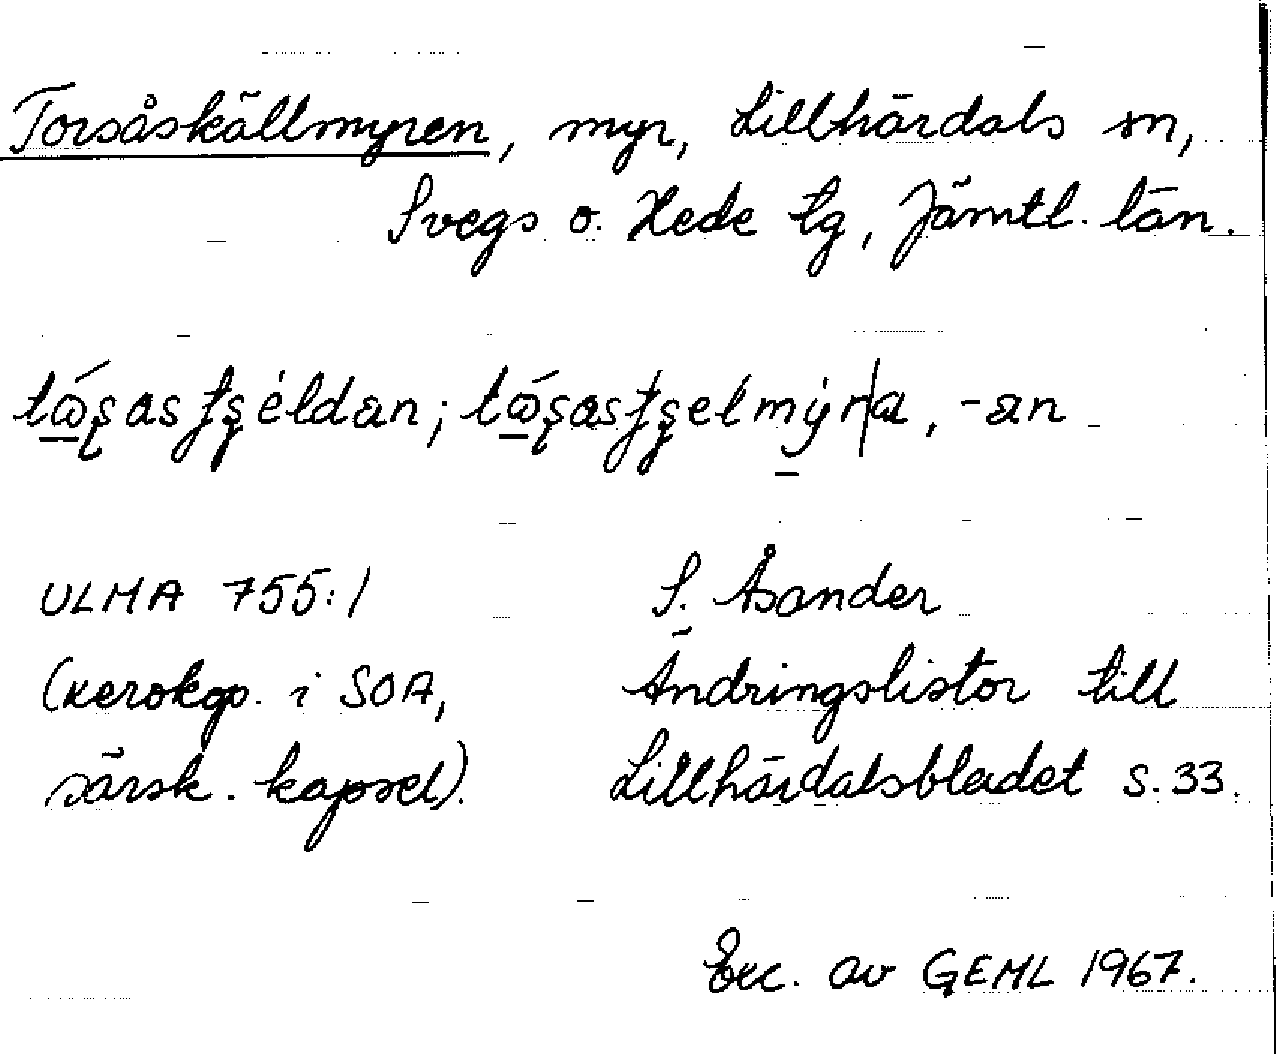 Torsåskällmyren, myr, Lillhärdals sn,
Svegs o. Hede tg, Jämtl. län.
ULMA 755:1 S. Åsander
(xerokop. i SOA, Ändringslistor till
särsk. kapsel). Lillhärdalsbladet s. 33.
Exc. av GEML 1967.